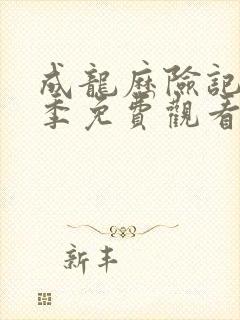 成龍歷險記
季免費觀看
新丰